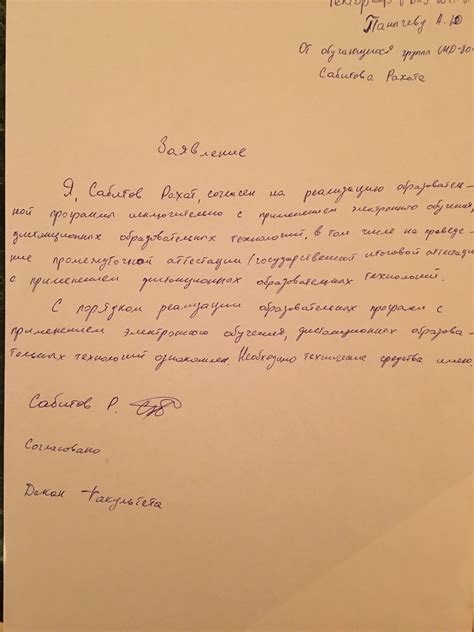 Паначеву А.Ю
От обучающегося группы
Сабитова Рахата
Заявление
Я, Сабитов Рахат, согласен на реализацию образователь-
ной программы исключительно с применением электронного обучения,
дистанционных образовательных технологий, в том числе на проведе-
ние промежуточной аттестации /государственной итоговой аттестации
с применением дистанционных образовательных технологий.
С порядком реализации образовательных программ с
применением электронного обучения, дистанционных образова-
тельных технологий ознакомлен. Необходимо технические средства имею.
Сабитов Р.
Согласовано
Декан Факультета